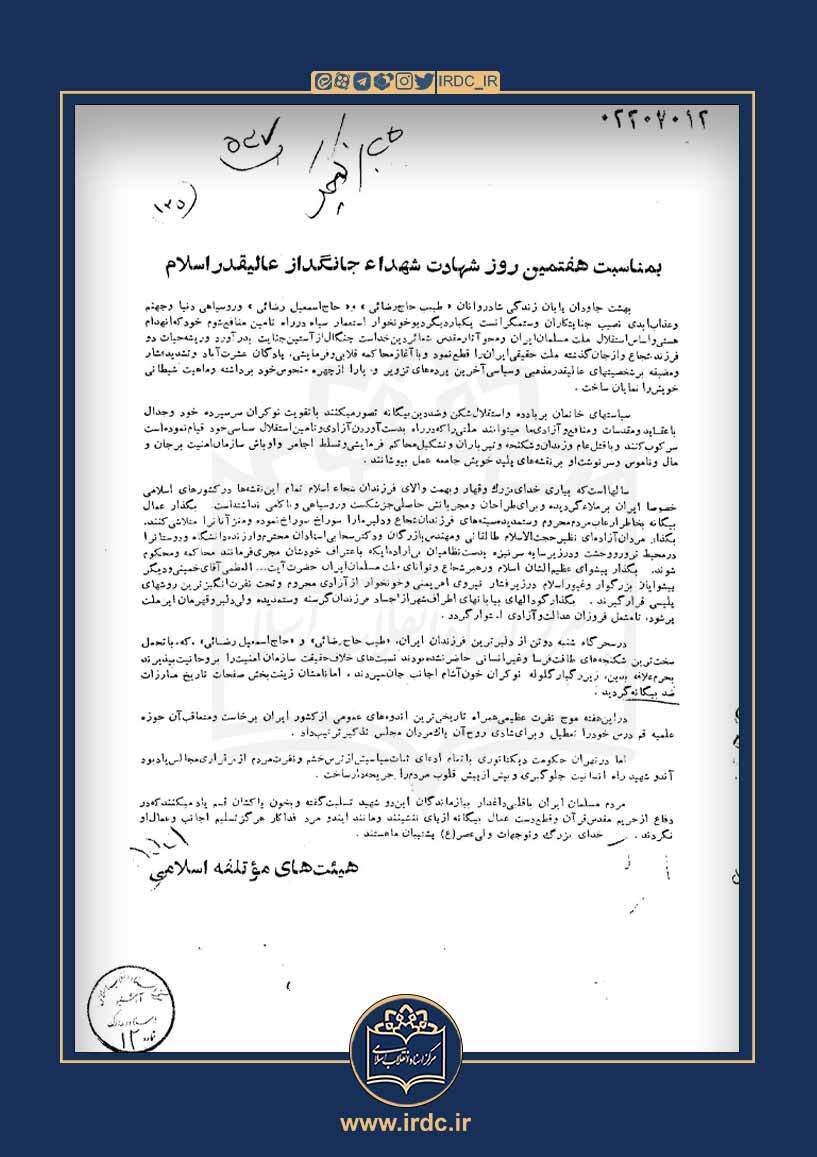 IRDC_IR
۰۲۲۰۷۰۱۲
۵۴۷
(۱۲۵
بمناسبت هفتمین روز شهادت شهداء جانگداز عالیقدر اسلام
بهشت جاودان پایان زندگی شادروانان « طیب حاج رضائی » و « حاج اسمعیل رضائی » وروسیاهی دنیا وجهنم
وعذاب ابدی نصیب جنایتکاران وستمگرانست یکبار دیگر دیو خونخوار استعمار سیاه در راه تامین منافع شوم خود که انهدام
هستی واساس استقلال ملت مسلمان ایران ومحو آثار مقدس شعائر دین خداست چنگال از آستین جنایت بدر آورد وریشه حیات دو
فرزند شجاع و از جان گذشته ملت حقیقی ایران را قطع نمود و با آغاز محاکمه قلابی و فرمایشی، پادگان عشرت آباد وتشدید فشار
ومضیقه بر شخصیتهای عالیقدر مذهبی وسیاسی آخرین پرده‌های تزویر و ریا را از چهره منحوس خود برداشته وماهیت شیطانی
خویش را نمایان ساخت .
سیاستهای خانمان بر باد ده و استقلال شکن وضد دین بیگانه تصور میکنند با تقویت نوکران سرسپرده خود وجدال
با عقاید ومقدسات ومنافع و آزادی‌ها میتوانند ملتی را که در راه بدست آوردن آزادی و تامین استقلال سیاسی خود قیام نموده است
سرکوب کنند و با قتل عام وزندان وشکنجه و تیرباران و تشکیل محاکم فرمایشی وتسلط اجامر و اوباش سازمان امنیت بر جان و
مال وناموس وسرنوشت او بر نقشه‌های پلید خویش جامعه عمل بپوشانند .
سالها است که بیاری خدای بزرگ وقهار وبهمت والای فرزندان شجاع اسلام تمام این نقشه‌ها در کشورهای اسلامی
خصوصا ایران برملاء گردیده و برای طراحان ومجریانش حاصلی جز شکست وروسیاهی وناکامی نداشته است . بگذار عمال
بیگانه بخاطر ارعاب مردم محروم وستمدیده سینه‌های فرزندان شجاع ودلیر ما را سوراخ سوراخ نموده ومغز آنانرا متلاشی کنند.
بگذار مردان آزاده‌ای نظیر حجت الاسلام طالقانی ومهندس بازرگان ودکتر سحابی استادان محترم وارزنده دانشگاه ودوستانرا
در محیط ترور ووحشت ودر زیر سایه سرنیزه بدست نظامیان بی‌اراده ایکه با اعتراف خودشان مجری فرمانند محاکمه ومحکوم
شوند. بگذار پیشوای عظیم الشان اسلام ورهبر شجاع وتوانای ملت مسلمان ایران حضرت آیت... العظمی آقای خمینی ودیگر
پیشوایان بزرگوار وغیور اسلام در زیر فشار نیروی اهریمنی وخونخوار از آزادی محروم وتحت نفرت انگیزترین روشهای
پلیسی قرار گیرند . بگذار گودالهای بیابانهای اطراف شهر از اجساد فرزندان گرسنه وستمدیده ولی دلیر وقهرمان ایرملت
پر شود، تا مشعل فروزان عدالت و آزادی استوار گردد .
در سحرگاه شنبه دو تن از دلیرترین فرزندان ایران، «طیب حاج رضائی» و «حاج اسمعیل رضائی» ، که با تحمل
سخت‌ترین شکنجه‌های طاقت فرسا وغیر انسانی حاضر نشده بودند نسبت‌های خلاف حقیقت سازمان امنیت را بر وحانیت بپذیرند
بجرم علاقه بدین، زیر رگبار گلوله نوکران خون آشام اجانب جان سپردند ، اما نامشان زینت بخش صفحات تاریخ مبارزات
ضد بیگانه گردید .
در این هفته موج نفرت عظیمی همراه تاریخی‌ترین اندوه‌های عمومی از کشور ایران برخاست ومتعاقب آن حوزه
علمیه قم درس خود را تعطیل و برای شادی روح آن پاک مردان مجلس تذکیر ترتیب داد .
اما در تهران حکومت دیکتاتوری با تمام ادعای ثبات سیاسیش از ترس خشم ونفرت مردم از برقراری مجالس یادبود
آندو شهید راه انسانیت جلوگیری و بیش از پیش قلوب مردم را جریحه‌دار ساخت .
مردم مسلمان ایران با قلبی داغدار ببازماندگان این دو شهید تسلیت گفته وبخون پاکشان قسم یاد میکنند که در
دفاع از حریم مقدس قرآن وقطع دست عمال بیگانه از پای ننشینند ومانند ایندو مرد فداکار هرگز تسلیم اجانب وعمال او
نگردند . خدای بزرگ وتوجهات ولی عصر(ع) پشتیبان ما هستند .
هیئت‌های مؤتلفه اسلامی
۱۲
مرکز اسناد انقلاب اسلامی
www.irdc.ir